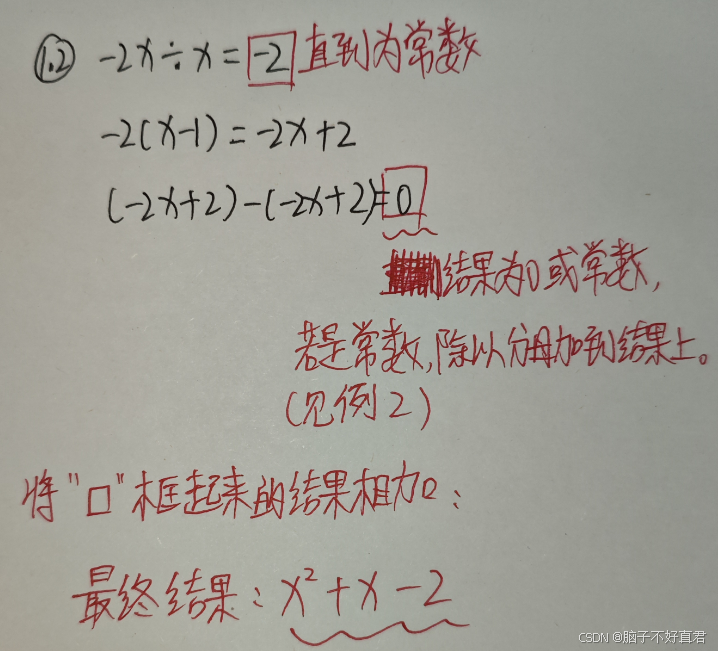 1.2 -2x÷x=-2 直到为常数
-2(x-1)=-2x+2
(-2x+2)-(-2x+2)=0
结果为0或常数,
若是常数,除以分母加到结果上。
(见例2)
将"口"框起来的结果相加:
最终结果:x²+x-2
CSDN @脑子不好直君